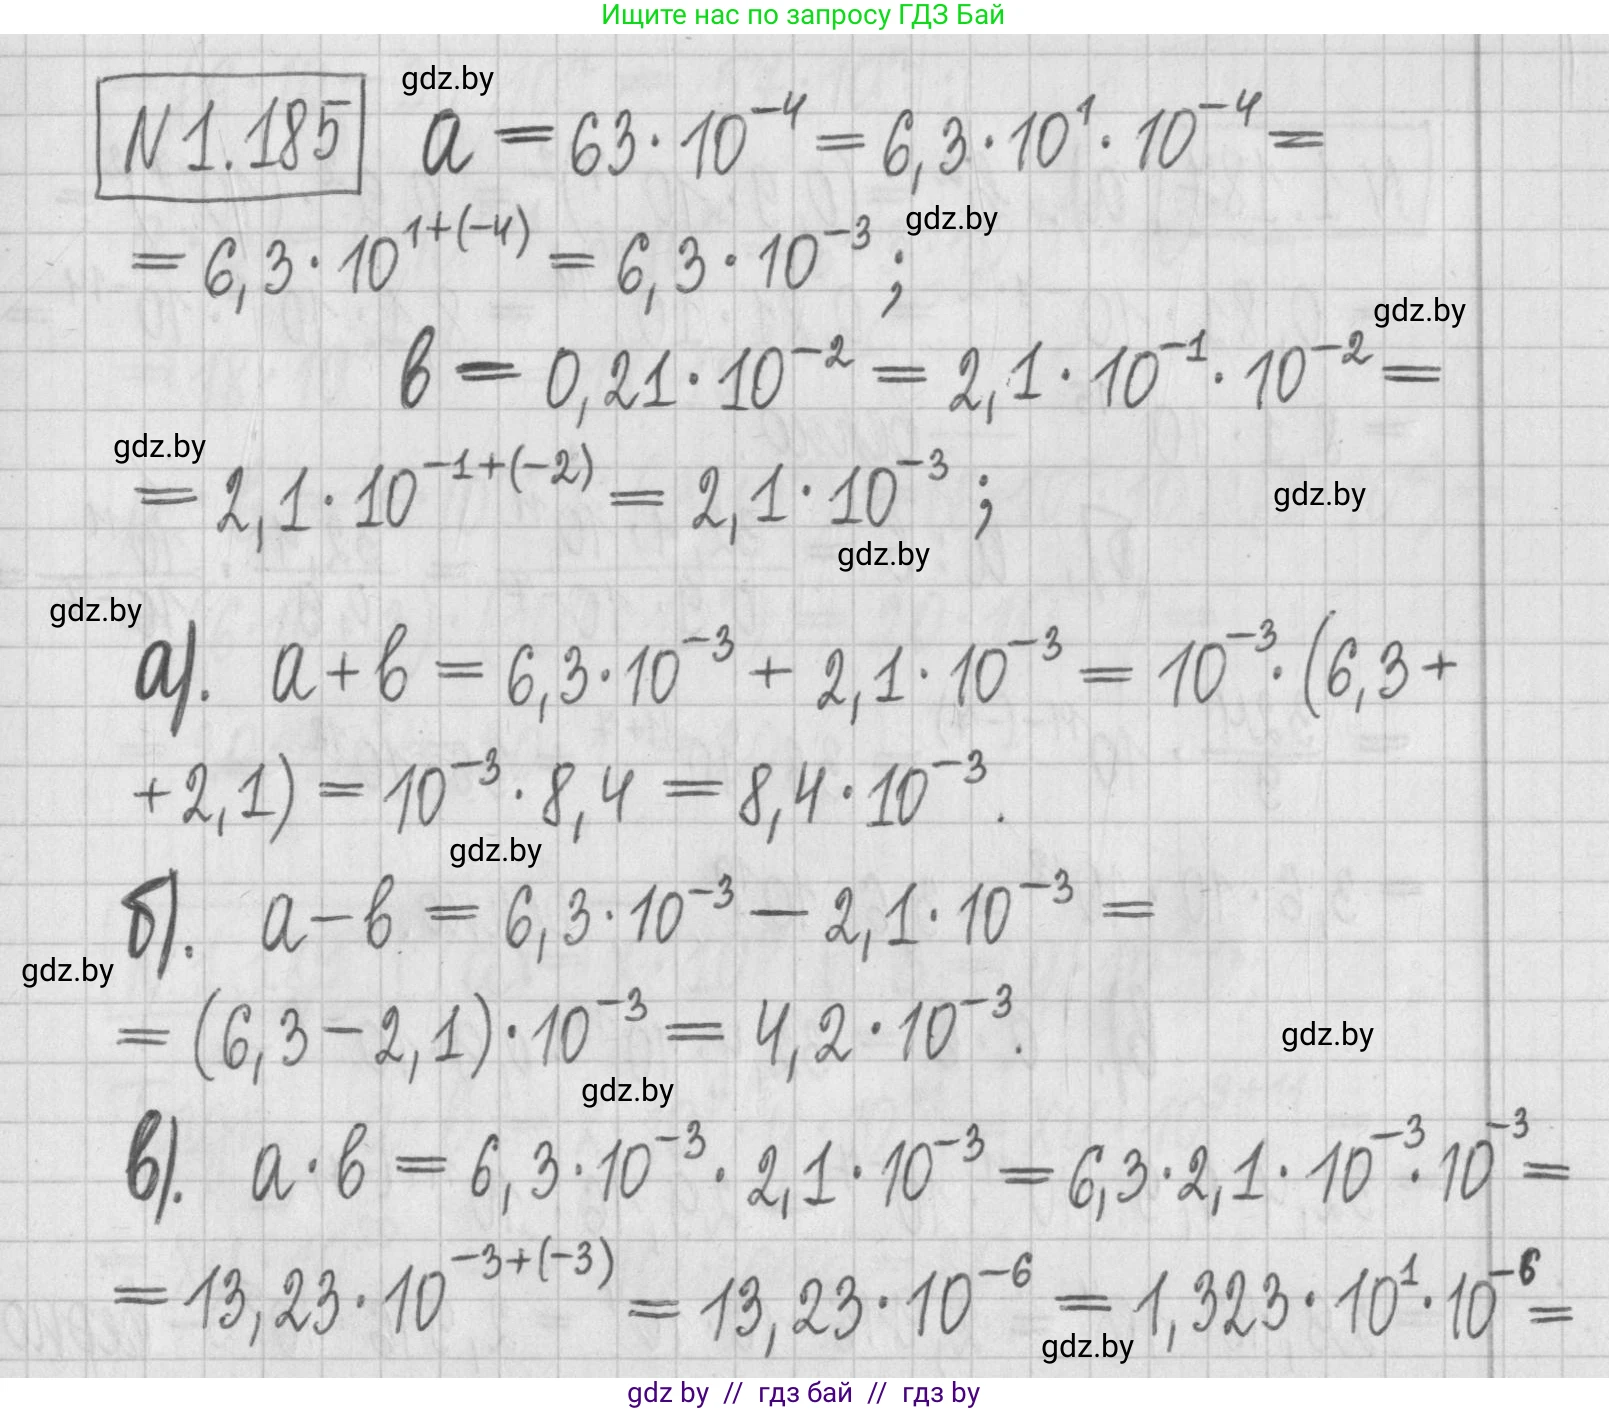 Ищите нас по запросу ГДЗ Бай
gdz.by
N 1.185 a = 63 · 10⁻⁴ = 6,3 · 10¹ · 10⁻⁴ =
gdz.by
= 6,3 · 10¹⁺⁽⁻⁴⁾ = 6,3 · 10⁻³ ;
gdz.by
в = 0,21 · 10⁻² = 2,1 · 10⁻¹ · 10⁻² =
gdz.by
= 2,1 · 10⁻¹⁺⁽⁻²⁾ = 2,1 · 10⁻³ ;
gdz.by
gdz.by
gdz.by
а). a + в = 6,3 · 10⁻³ + 2,1 · 10⁻³ = 10⁻³ · (6,3 +
+ 2,1) = 10⁻³ · 8,4 = 8,4 · 10⁻³.
gdz.by
б). a – в = 6,3 · 10⁻³ – 2,1 · 10⁻³ =
gdz.by
= (6,3 – 2,1) · 10⁻³ = 4,2 · 10⁻³.
gdz.by
gdz.by
в). a · в = 6,3 · 10⁻³ · 2,1 · 10⁻³ = 6,3 · 2,1 · 10⁻³ · 10⁻³ =
= 13,23 · 10⁻³⁺⁽⁻³⁾ = 13,23 · 10⁻⁶ = 1,323 · 10¹ · 10⁻⁶ =
gdz.by
gdz by // гдз бай // гдз by